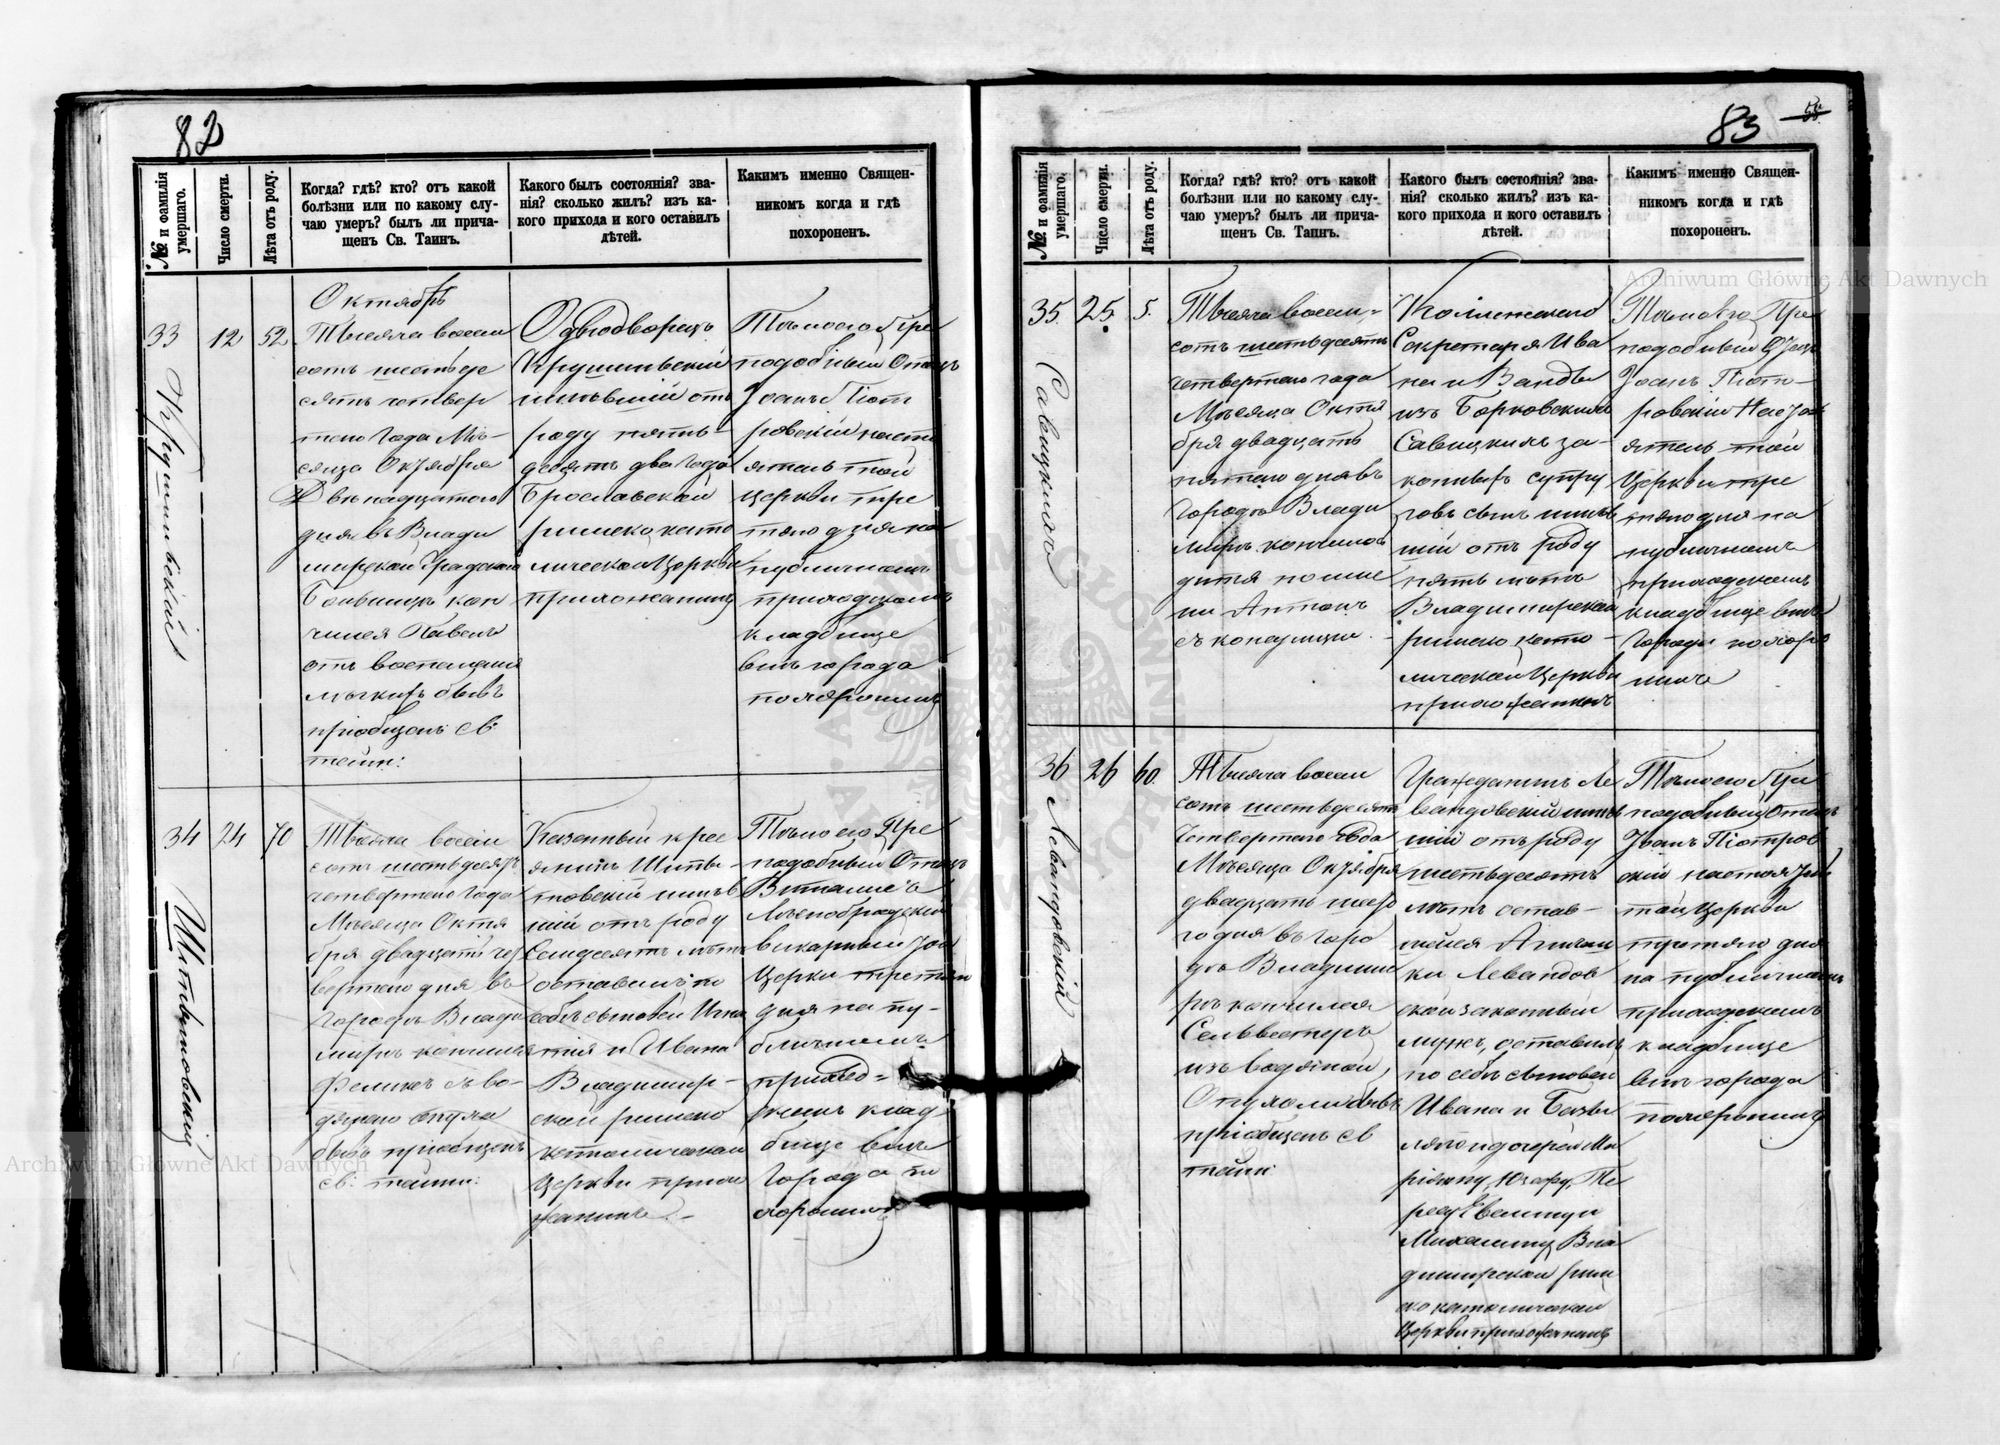 82
№ и фамилія умершаго.
Число смерти.
Лѣта отъ роду.
Когда? гдѣ? кто? отъ какой
болѣзни или по какому слу-
чаю умеръ? былъ ли прича-
щенъ Св. Таинъ.
Какого былъ состоянія? зва-
нія? сколько жилъ? изъ ка-
кого прихода и кого оставилъ
дѣтей.
Какимъ именно Священ-
никомъ когда и гдѣ
похороненъ.
33
12
52
Октябрь
Тысяча восем
сотъ шестьде
сятъ четвер
таго года Мѣ-
сяца Октября
Двѣнадцатого
дня въ Влади
мірской Градской
кон
чился Павелъ
отъ воспаленія
легкихъ бывъ
пріобщенъ Св.
тайн:
Однодворецъ
имѣвшій отъ
роду пять-
десятъ два года
римско като
лической Церкви
прихожанинъ
Тѣло его Пре
подобный Отецъ
Іоаннъ Піот
ровскій насто
ятель той
церкви тре
тяго дня на
публичномъ
приходскомъ
кладбище
внѣ города
похоронилъ
34
24
70
Тысяча восем
сотъ шестьдесятъ
четвертого года
Мѣсяца Октя
бря двадцать чет
вертого дня въ
городѣ Влади
мірѣ кончился
Феликсъ съ во-
дяной опухли
бывъ пріобщенъ
св: тайнъ:
Казенный крес
янинъ Щиты-
новскій имѣв
шій отъ роду
Семдесятъ лѣтъ
оставилъ по
себѣ сыновей Игна
тія и Ивана
Владимир-
ской римско
католической
Церкви прихо
жанинъ.-
Тѣло его Пре
подобный Отецъ
викарный той
Церкви третяго
дня на пу-
бличномъ
приход-
скомъ клад-
бище внѣ
города по
хоронилъ
83
№ и фамилія умершаго.
Число смерти.
Лѣта отъ роду.
Когда? гдѣ? кто? отъ какой
болѣзни или по какому слу-
чаю умеръ? былъ ли прича-
щенъ Св. Таинъ.
Какого былъ состоянія? зва-
нія? сколько жилъ? изъ ка-
кого прихода и кого оставилъ
дѣтей.
Какимъ именно Священ-
никомъ когда и гдѣ
похороненъ.
35
Савицкихъ
25
5.
Тысяча восем-
сотъ шестьдесятъ
четвертого года
Мѣсяца Октя
бря двадцать
пятого дня въ
Городѣ Влади
мірѣ кончилось
дитя по име
ни Антонъ
съ конвулціи
Коллежского
Секретаря Ива
на и Ванды
изъ Борковскихъ
Савицкихъ за-
конныхъ супру
говъ сынъ имѣв
шій отъ роду
пять лѣтъ
Владимирской
римско като-
лической Церкви
прихожанинъ
Тѣло его Пре
подобный Отецъ
Іоанъ Піот-
ровскій Насто
ятель той
Церкви тре
тяго дня на
публичномъ
приходскомъ
кладбище внѣ
города похоро
нилъ
36
Левандовскій
26
60.
Тысяча восем
сотъ шестьдесятъ
Четвертого года
Мѣсяца Октября
двадцать шесто
го дня въ горо
дѣ Владими
рѣ кончился
Сельвестеръ
изъ водяной
Опухоли бывъ
пріобщенъ св
тайн:
Гражданинъ Ле
вандовскій имѣв
шій отъ роду
шестьдесятъ
лѣтъ остав-
шейся
Левандов
ской законный
мужъ, оставилъ
по себѣ сыновей
Ивана и
и дочерей Ма
ріянну, Юзефу, Те
резу Евелину и
Михалину Вла
димирской рим
ско католической
Церкви прихожанинъ
Тѣло его Пре
подобный Отецъ
Іоанъ Піотров
скій настоятель
той Церкви
третяго дня
на публичномъ
приходскомъ
кладбище
внѣ города
похоронилъ
Archiwum Główne Akt Dawnych
Archiwum Główne Akt Dawnych